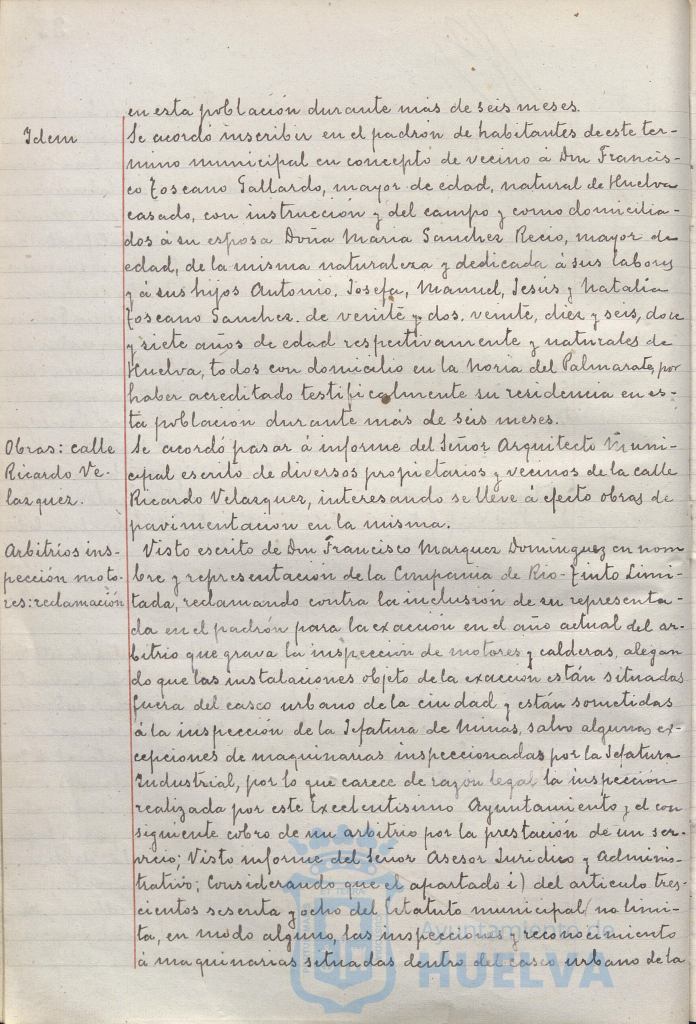 en esta poblacion durante más de seis meses.
Idem
Se acordó inscribir en el padrón de habitantes de este ter-
mino municipal en concepto de vecino á Don Francis-
co Toscano Gallardo, mayor de edad, natural de Huelva
casado, con instrucción y del campo y como domicilia-
dos á su esposa Doña Maria Sanchez Recio, mayor de
edad, de la misma naturaleza y dedicada á sus labores
y á sus hijos Antonio, Josefa, Manuel, Jesús y Natalia
Toscano Sanchez. de veinte y dos, veinte, diez y seis, doce
y siete años de edad respetivamente y naturales de
Huelva, todos con domicilio en la Noria del Palmarete, por
haber acreditado testificalmente su residencia en es-
ta poblacion durante más de seis meses.
Obras: calle
Ricardo Ve-
lazquez.
Se acordó pasar á informe del Señor Arquitecto Muni-
cipal escrito de diversos propietarios y vecinos de la calle
Ricardo Velazquez, interesando se lleve á efecto obras de
pavimentacion en la misma.
Arbitrios ins-
pección moto-
res: reclamación
Visto escrito de Don Francisco Marquez Dominguez en nom
bre y representación de la Compania de Rio-Tinto Limi-
tada, reclamando contra la inclusión de su representa-
da en el padrón para la exacción en el año actual del ar-
bitrio que grava la inspección de motores y calderas, alegan
do que las instalaciones objeto de la exacción están situadas
fuera del casco urbano de la ciudad y están sometidas
á la inspección de la Jefatura de Minas, salvo algunas ex-
cepciones de maquinarias inspeccionadas por la Jefatura
Industrial, por lo que carece de razón legal la inspección
realizada por este Excelentisimo Ayuntamiento y el con
siguiente cobro de un arbitrio por la prestación de un ser-
vicio; Visto informe del Señor Asesor Juridico y Adminis-
trativo; Considerando que el apartado i) del articulo tres-
cientos sesenta y ocho del Estatuto municipal, no limi-
ta, en modo alguno, las inspecciones y reconocimiento
á maquinarias situadas dentro del casco urbano de la
Ayuntamiento de
HUELVA